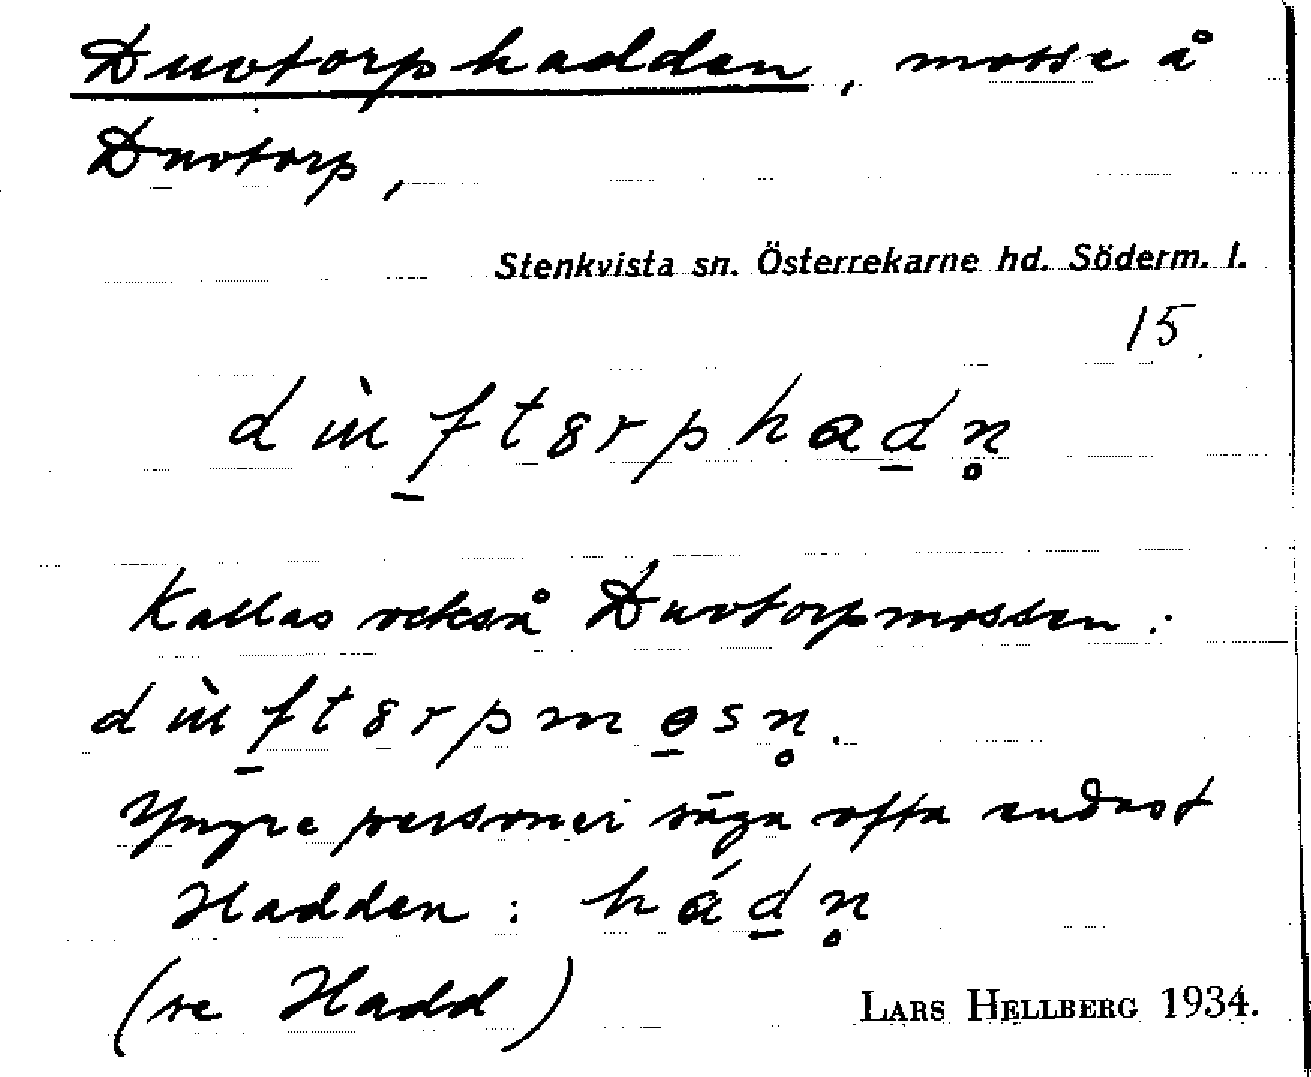 Duvtorphadden, mosse å
Duvtorp,
Stenkvista sn. Österrekarne hd. Söderm. l.
15
dɯ̀f̠tꞵrphad̠n̥
Kallas också Duvtorpmossen:
dɯ̀f̠tꞵrpmo̠sn̥.
Yngre personer säga ofta endast
Hadden: hád̠n̥
(se Hadd)
LARS HELLBERG 1934.